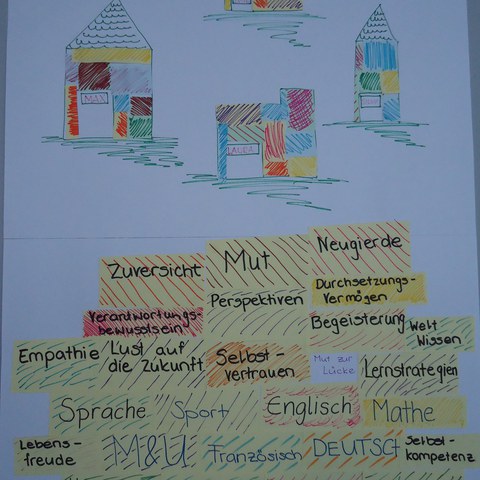 MAX
Zuversicht
Mut
Neugierde
Perspektiven
Durchsetzungs-
Vermögen
Verantwortungs-
bewusstsein
Begeisterung
Welt
Wissen
Empathie
Lust auf
die Zukunft
Selbst-
vertrauen
Mut zur
Lücke
Lernstrategien
Sprache
Sport
Englisch
Mathe
Lebens-
freude
M&U
Französisch
DEUTSCH
Selbst-
kompetenz